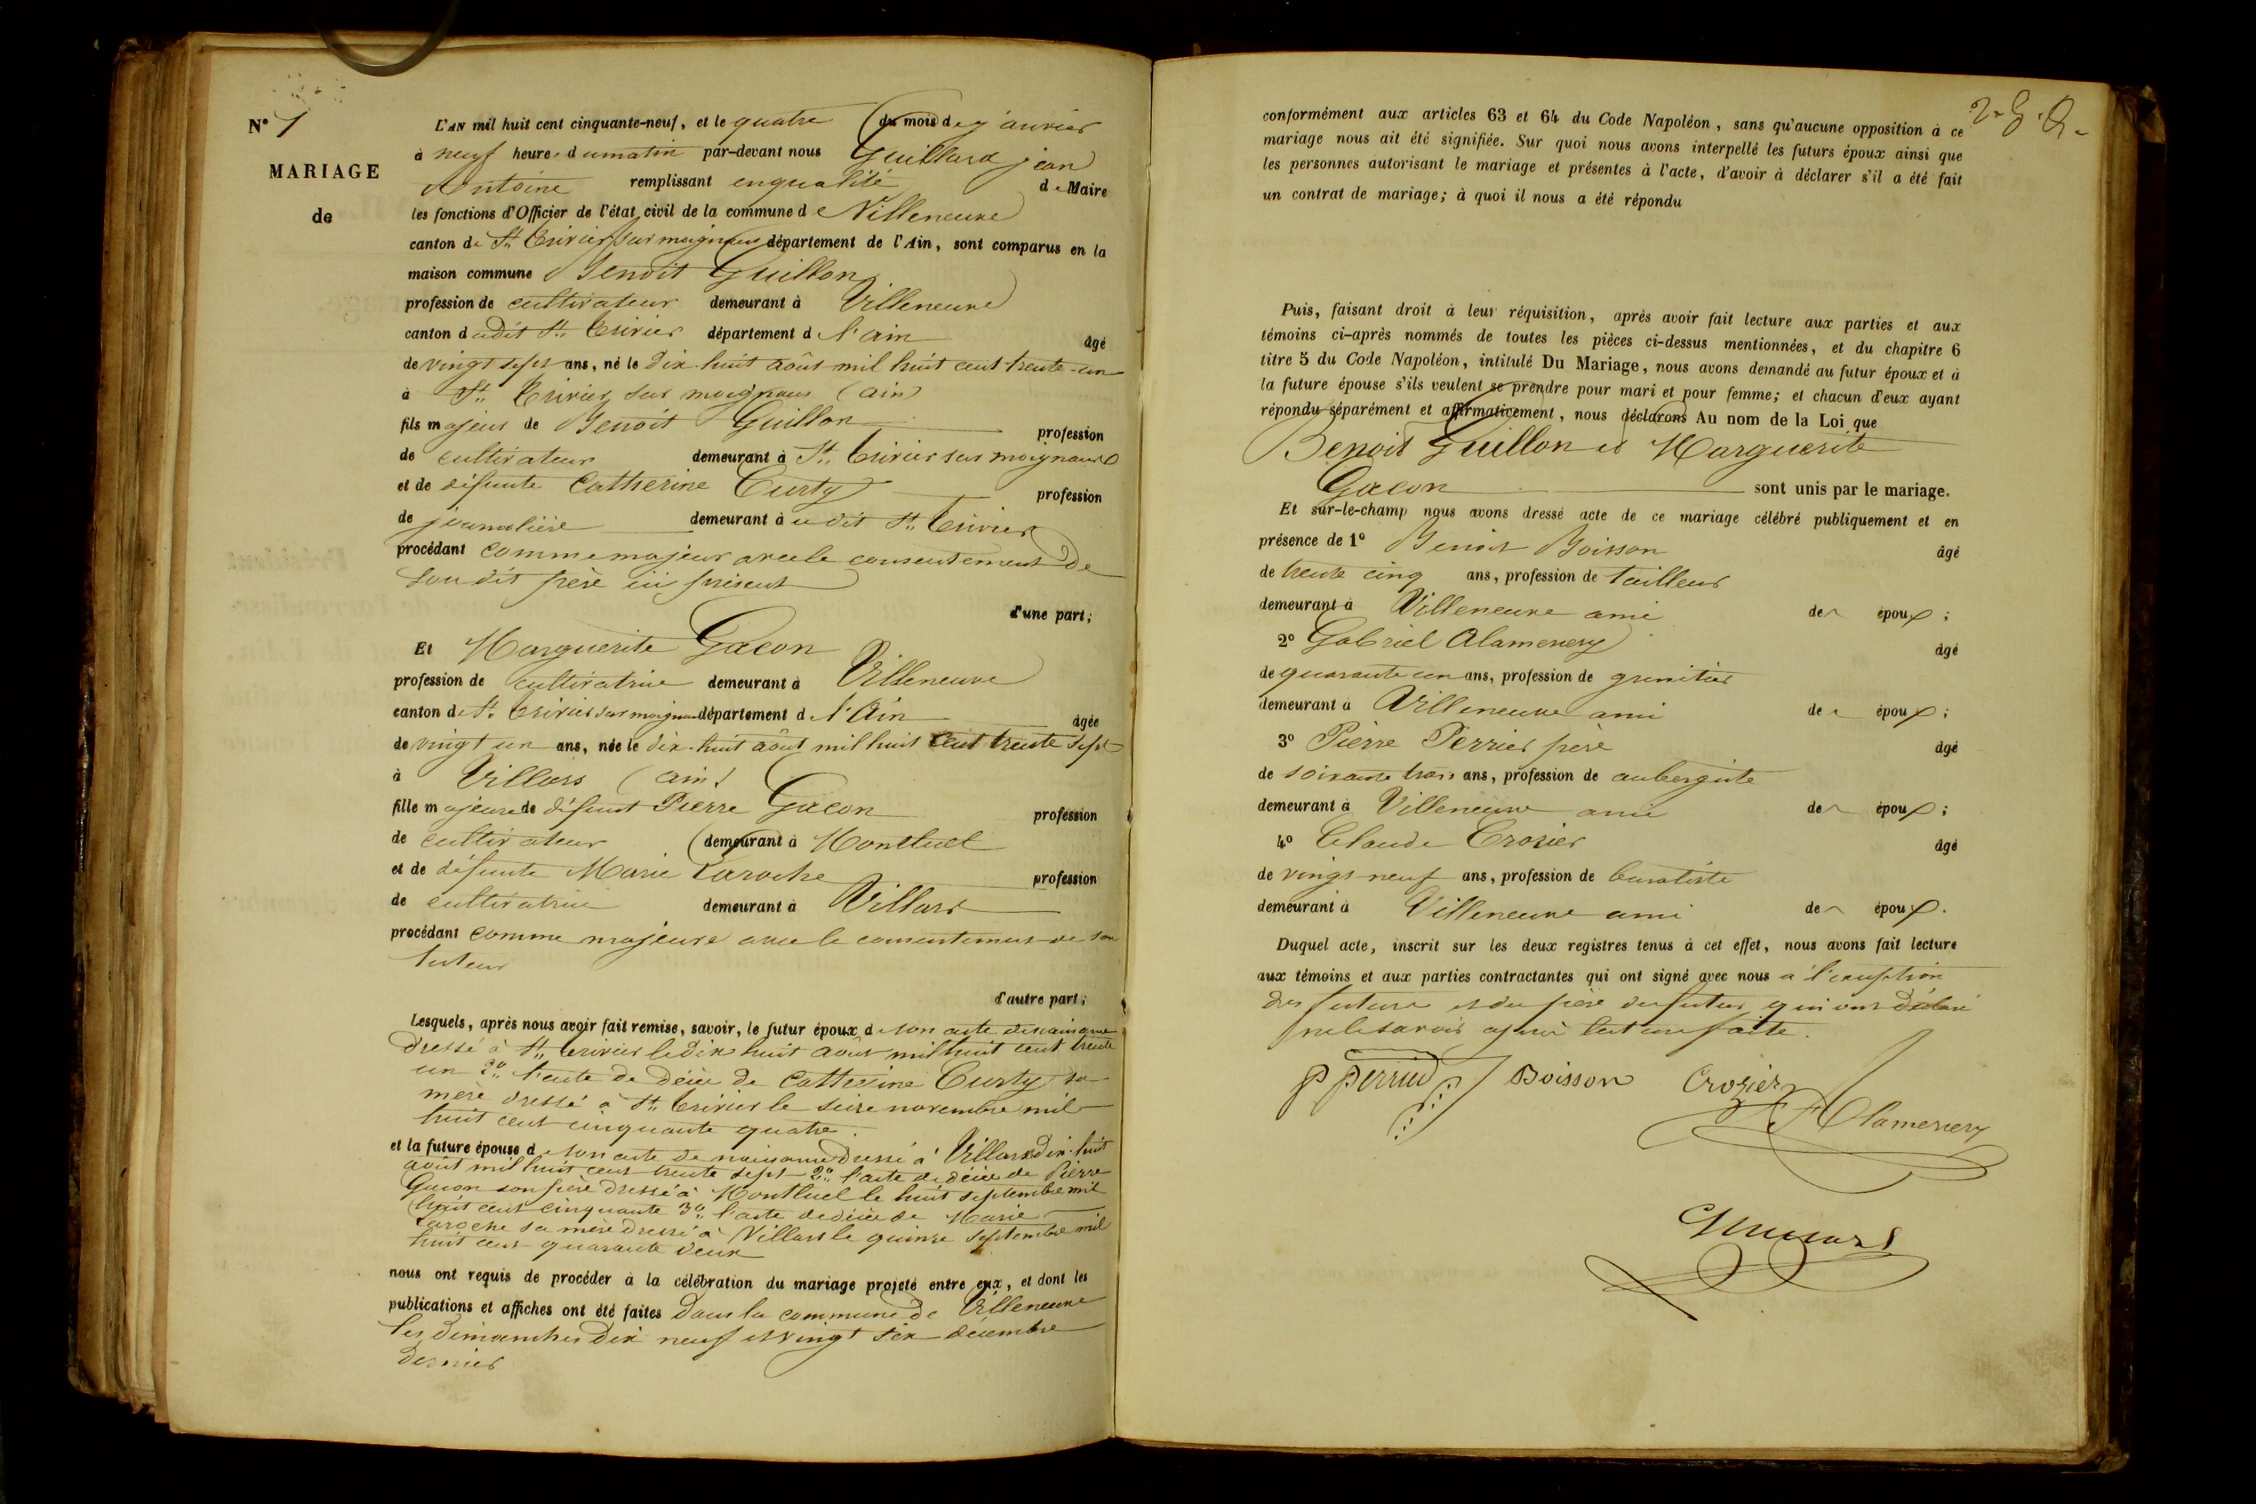 N° 1
MARIAGE
de
L'AN mil huit cent cinquante-neuf, et le quatre du mois de janvier
à neuf heures du matin par-devant nous Guillard jean
Antoine remplissant en qualité de Maire
les fonctions d'Officier de l'état civil de la commune de Villeneuve
canton de St Trivier sur moignans département de l'Ain, sont comparus en la
maison commune Benoit Guillon
profession de cultivateur demeurant à Villeneuve
canton dudit St Trivier département de l'ain âgé
de vingt sept ans, né le dix-huit août mil huit cent trente-un
à St Trivier sur moignans (ain)
fils majeur de Benoit Guillon profession
de cultivateur demeurant à St Trivier sur moignans
et de défunte Catherine Curty profession
de journalière demeurant à udit St Trivier
procédant comme majeur avec le consentement de
son dit père ici présent
d'une part;
Et Marguerite Gacon
profession de cultivatrice demeurant à Villeneuve
canton de St Trivier sur moignans département de l'Ain âgée
de vingt un ans, née le dix-huit août mil huit cent trente sept
à Villars (ain)
fille majeure de défunt Pierre Gacon profession
de cultivateur demeurant à Montluel
et de défunte Marie Laroche profession
de cultivatrice demeurant à Villars
procédant comme majeure avec le consentement de son
tuteur
d'autre part;
Lesquels, après nous avoir fait remise, savoir, le futur époux de son acte de naissance
dressé à St Trivier le dix huit août mil huit cent trente
un 2° l'acte de décès de Catherine Curty sa
mère dressé à St Trivier le seize novembre mil
huit cent cinquante quatre.
et la future épouse de son acte de naissance dressé à Villars dix-huit
août mil huit cent trente sept 2° l'acte de décès de Pierre
Gacon son père dressé à Montluel le huit septembre mil
huit cent cinquante 3° l'acte de décès de Marie
Laroche sa mère dressé à Villars le quinze septembre mil
huit cent quarante deux
nous ont requis de procéder à la célébration du mariage projeté entre eux, et dont les
publications et affiches ont été faites dans la commune de Villeneuve
les dimanches dix neuf et vingt six décembre
dernier
conformément aux articles 63 et 64 du Code Napoléon, sans qu'aucune opposition à ce
mariage nous ait été signifiée. Sur quoi nous avons interpellé les futurs époux ainsi que
les personnes autorisant le mariage et présentes à l'acte, d'avoir à déclarer s'il a été fait
un contrat de mariage; à quoi il nous a été répondu
Puis, faisant droit à leur réquisition, après avoir fait lecture aux parties et aux
témoins ci-après nommés de toutes les pièces ci-dessus mentionnées, et du chapitre 6
titre 5 du Code Napoléon, intitulé Du Mariage, nous avons demandé au futur époux et à
la future épouse s'ils veulent se prendre pour mari et pour femme; et chacun d'eux ayant
répondu séparément et affirmativement, nous déclarons Au nom de la Loi que
Benoit Guillon et Marguerite
Gacon sont unis par le mariage.
Et sur-le-champ nous avons dressé acte de ce mariage célébré publiquement et en
présence de 1° Benoit Boisson âgé
de trente cinq ans, profession de tailleur
demeurant à Villeneuve ami de époux;
2° Gabriel Alamercery âgé
de quarante un ans, profession de
demeurant à Villeneuve ami de époux;
3° Pierre Perrier père âgé
de soixante trois ans, profession de aubergiste
demeurant à Villeneuve ami de époux;
4° Claude Crozier âgé
de vingt neuf ans, profession de buraliste
demeurant à Villeneuve ami de époux.
Duquel acte, inscrit sur les deux registres tenus à cet effet, nous avons fait lecture
aux témoins et aux parties contractantes qui ont signé avec nous a l'exception
des future et du père du futur qui ont déclaré
ne le savoir après lecture faite.
Boisson Crozier
Alamercery